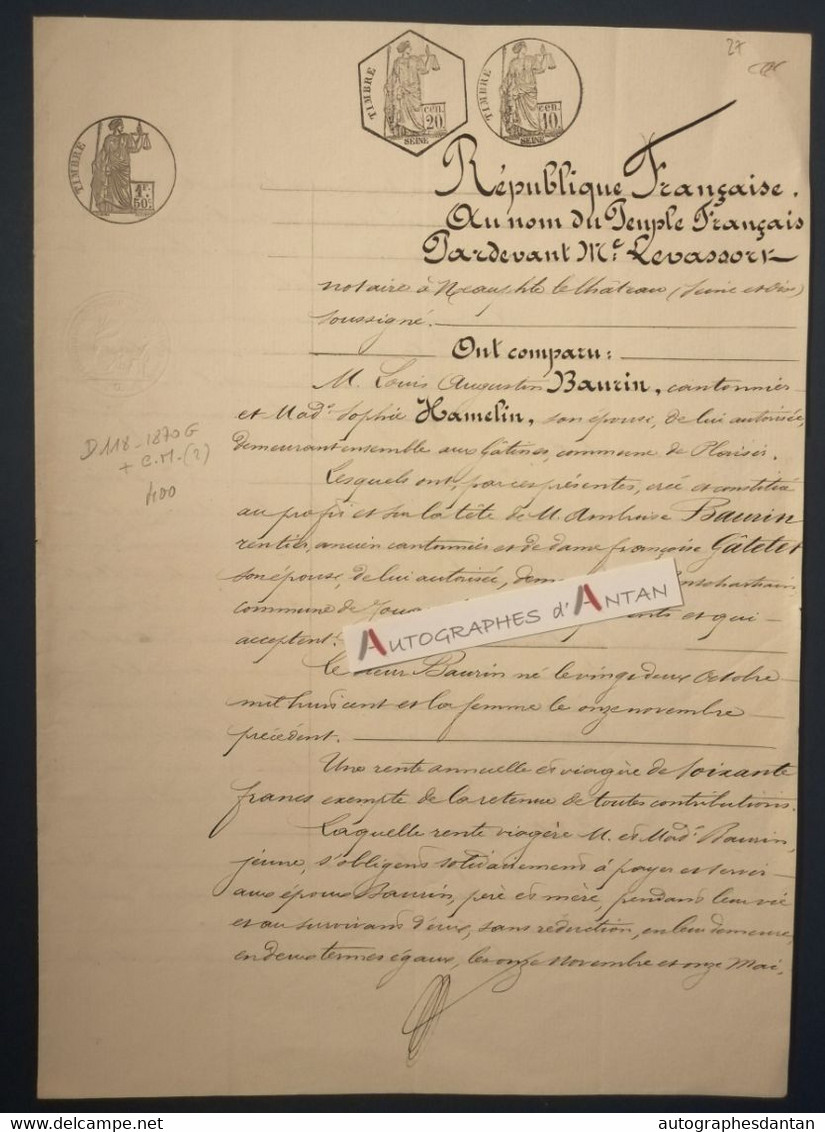 27
TIMBRE
20 cen.
SEINE
TIMBRE
cen. 10
SEINE
TIMBRE
1f. 50c.
République Française.
Au nom du Peuple Français
Pardevant Me. Levassort
notaire à Neauphle le Château (Seine et Oise)
soussigné.
Ont comparu:
M. Louis Augustin Baurin, cantonnier
et Made. Sophie Hamelin, son épouse, de lui autorisée,
demeurant ensemble aux Gâtines, commune de Plaisir.
Lesquels ont, par ces présentes, créé et constitué
au profit et sur la tête de M. Ambroise Baurin
rentier, ancien cantonnier et de dame françoise Gâtelet
son épouse, de lui autorisée,
commune de
acceptent. et qui
Le sieur Baurin né le vingt deux Octobre
mil huit cent et la femme le onze novembre
précédent.
Une rente annuelle et viagère de Soixante
francs exempte de la retenue de toutes contributions.
Laquelle rente viagère M. et Made. Baurin,
jeune, s'obligent solidairement à payer et servir
aux époux Baurin, père et mère, pendant leur vie
et au survivant d'eux, sans réduction, en leur demeure,
en deux termes égaux, les onze Novembre et onze Mai,
D118-1870G
+ C.M.(2)
400
AUTOGRAPHES d'ANTAN
delcampe.net
autographesdantan